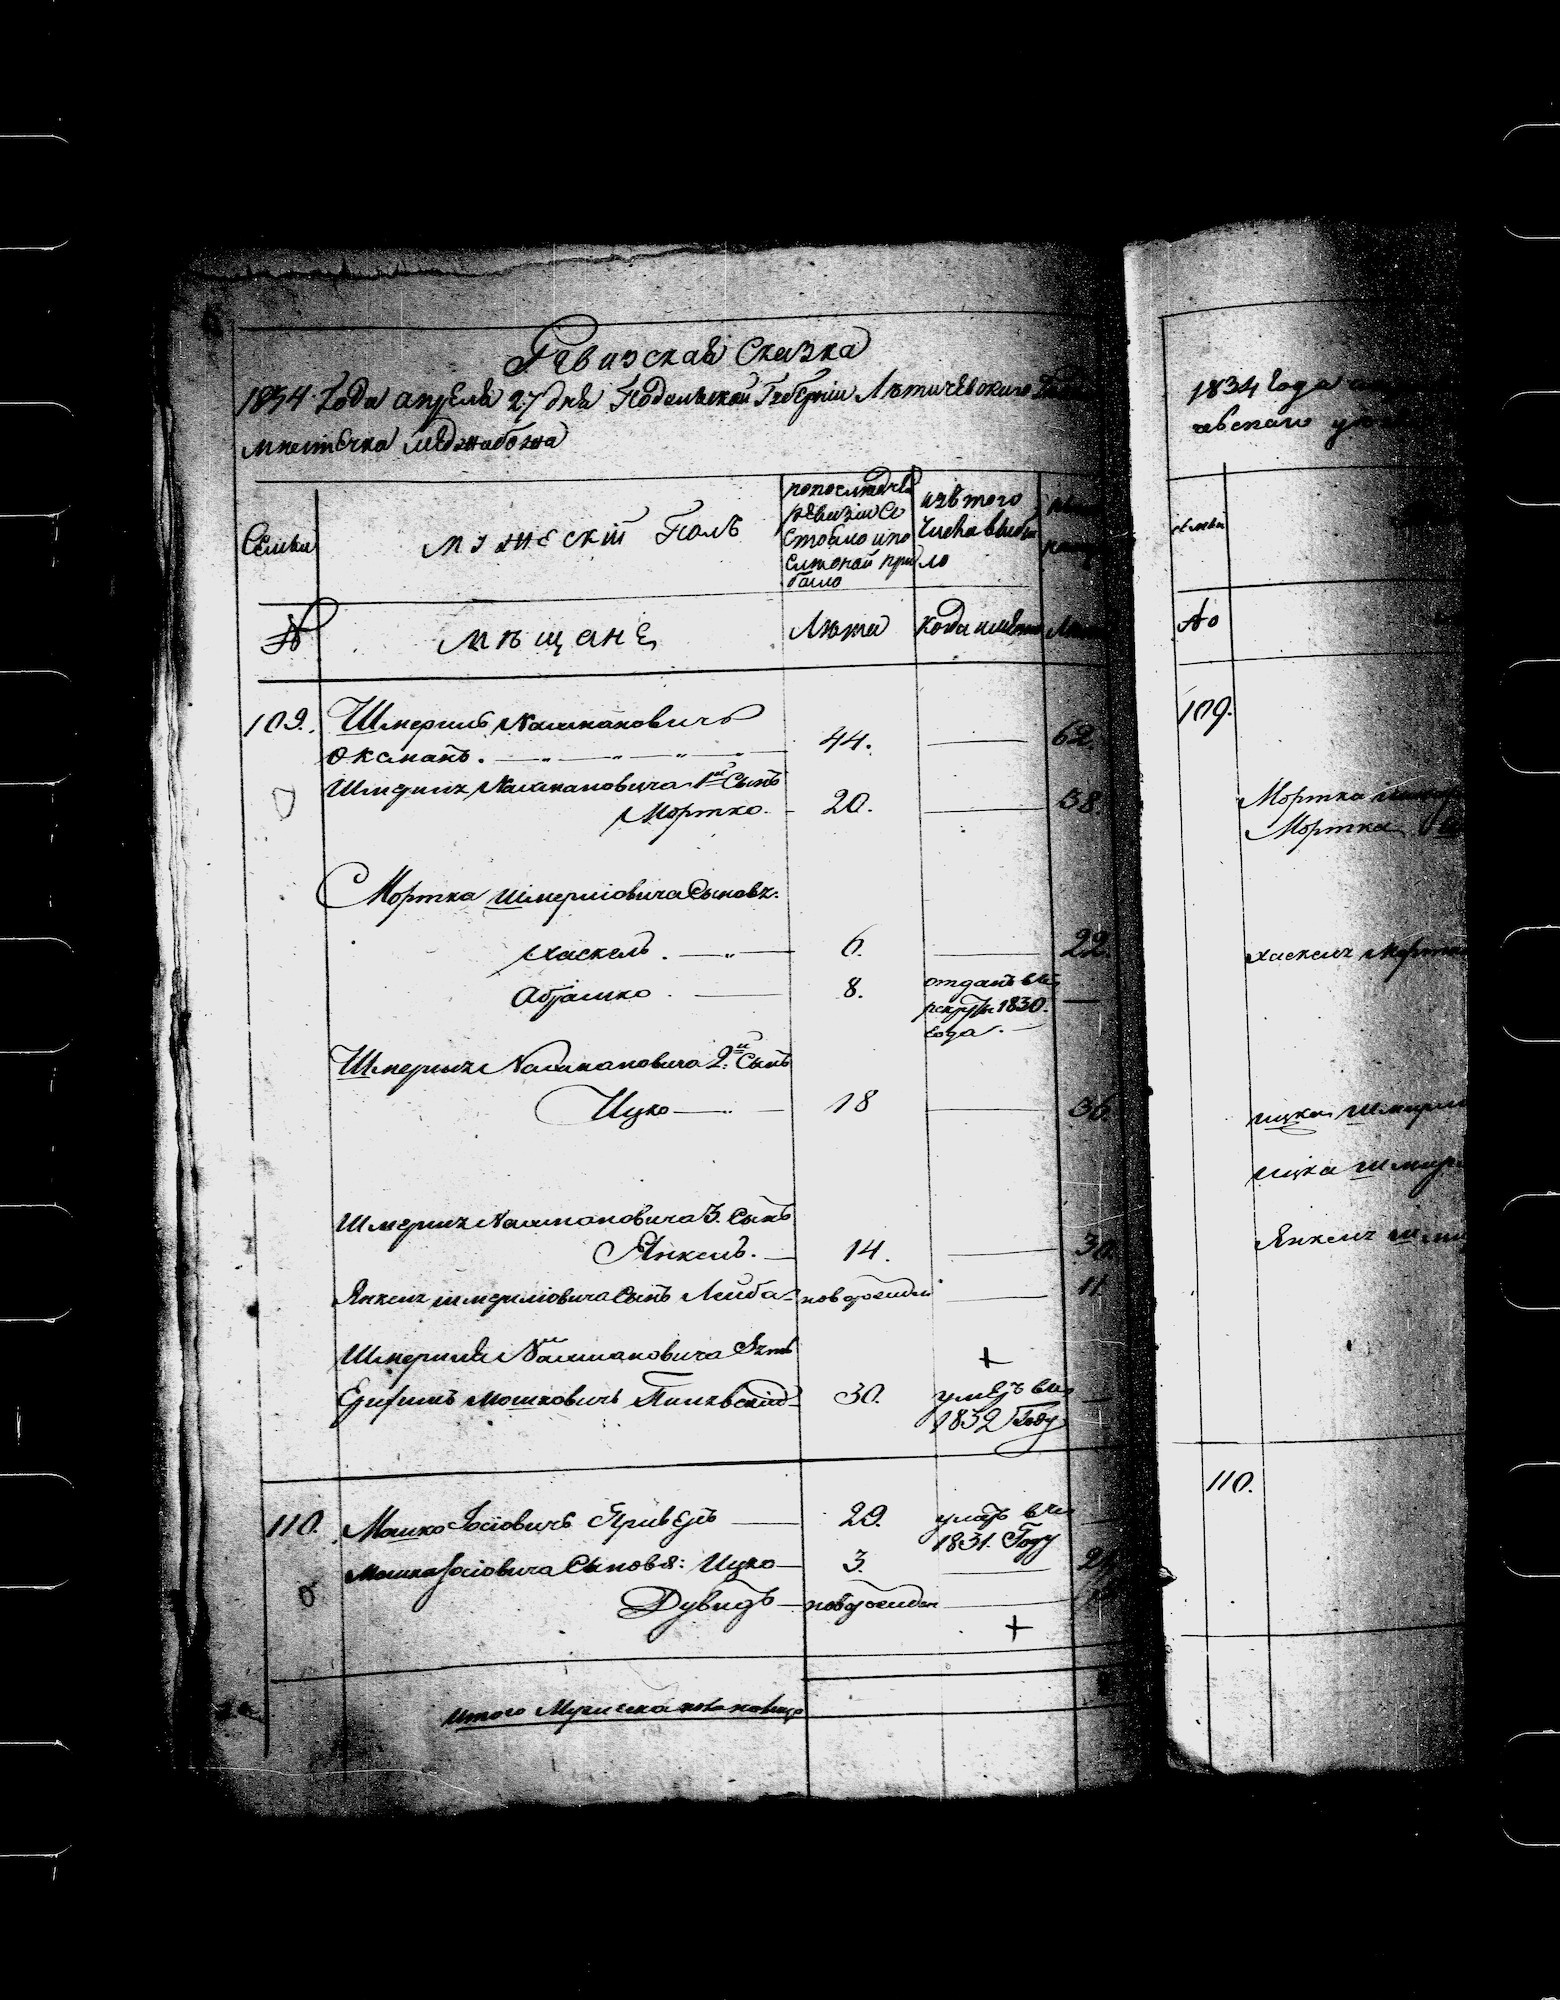 Ревизская Сказка
1834 Года апреля 27 дня Подольской Губерніи Летичевскаго
местечка Меджабожа
Семьи
Мужескій Полъ
по последней
ревизіи со
стояло и по
сле оной при
было
изъ того
числа выбы
ло
№
Мещане
Лета
Когда именно
Лета
109. Шмериль Калмановичъ
Оксманъ. 44. 62.
Шмериля Калмановича 1й Сынъ
Мортко. 20. 38.
Мортка Шмерліовича Сыновя.
Хаскель. 6. 22.
Абрамко. 8. отданъ въ
рекруты 1830.
года.
Шмериля Калмановича 2й Сынъ
Ицко 18 36.
Шмериля Калмановича 3. Сынъ
Янкель. 14. 30.
Янкеля Шмерліовича Сынъ Лейба новорожденный 11
Шмериля Калмановича Зять
мошковичъ 30. умеръ въ
1832 Году
110. Мошко Іосіовичъ 29. умеръ въ
1831. Году
Мошка Іосіовича Сыновя: Ицко 3.
Дувидъ новорожден
итого Мужеска пола налицо
1834 Года
евскаго
семьи
№
109.
Мортка
Мортка
Хаскеля
ицка
ицка
Янкеля
110.